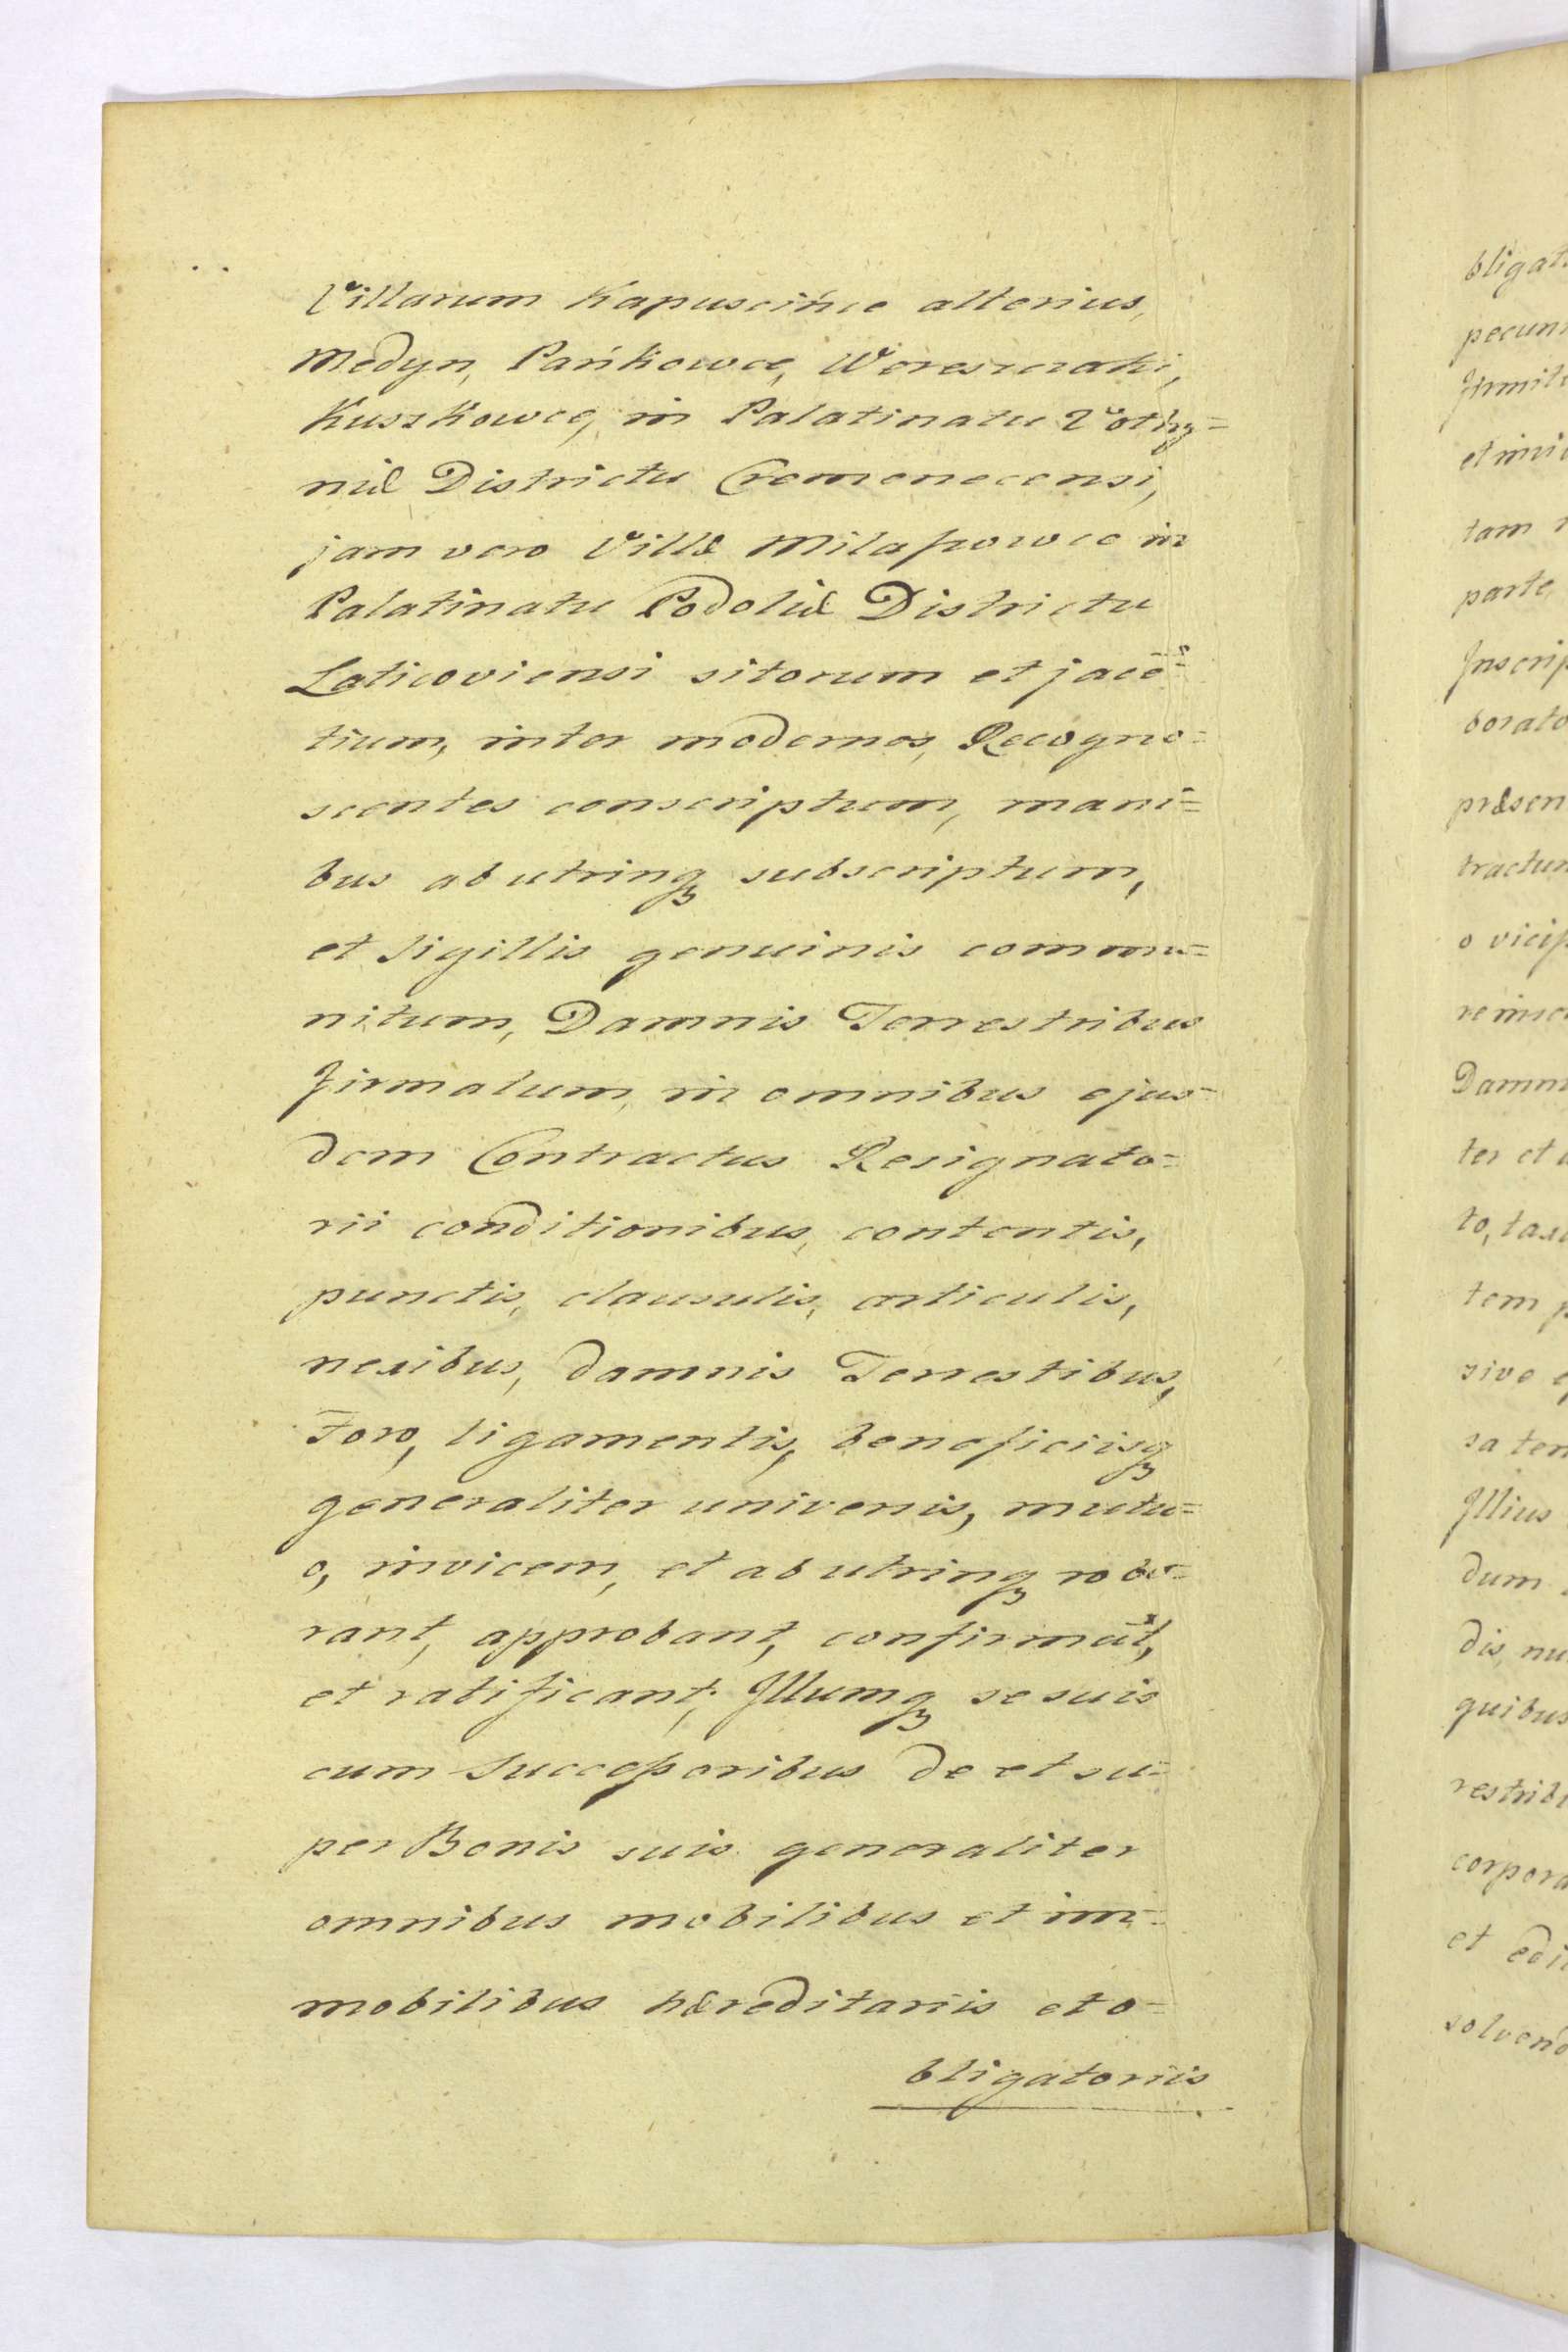 Villarum Kapuscińce alterius,
Medyn, Pańkowce, Woreszczaki,
Kuszkowce, in Palatinatu Volhy=
niæ Districtu Cremenecensi,
jam vero Villæ Milaszowce in
Palatinatu Podoliæ Districtu
Laticoviensi sitorum et jacē=
tium, inter modernos, Recogno=
scentes conscriptum, mani=
bus ab utrinqȝ subscriptum,
et Sigillis genuinis commu=
nitum, Damnis Terrestribus
firmatum, in omnibus ejus=
dem Contractus Resignato=
rii conditionibus, contentis,
punctis, clausulis, articulis,
nexibus, damnis Terrestibus,
Foro, ligamentis, beneficiisqȝ
generaliter universis, mutu=
o, invicem, et ab utrinqȝ robo=
rant, approbant, confirmāt,
et ratificant, Illumqȝ se suis
cum Successoribus de et su=
per Bonis suis generaliter
omnibus mobilibus et im=
mobilibus hæreditariis et o=
bligatoriis
bligat
pecun
firmit
et invi
tam
parte,
Inscrip
borato
præsen
tractum
o vicis
reinsc
Damn
ter et
to, tax
tem p
sive
sa ten
Illius
dum
dis, nu
quibus
restrib
corpora
et edi
solvend